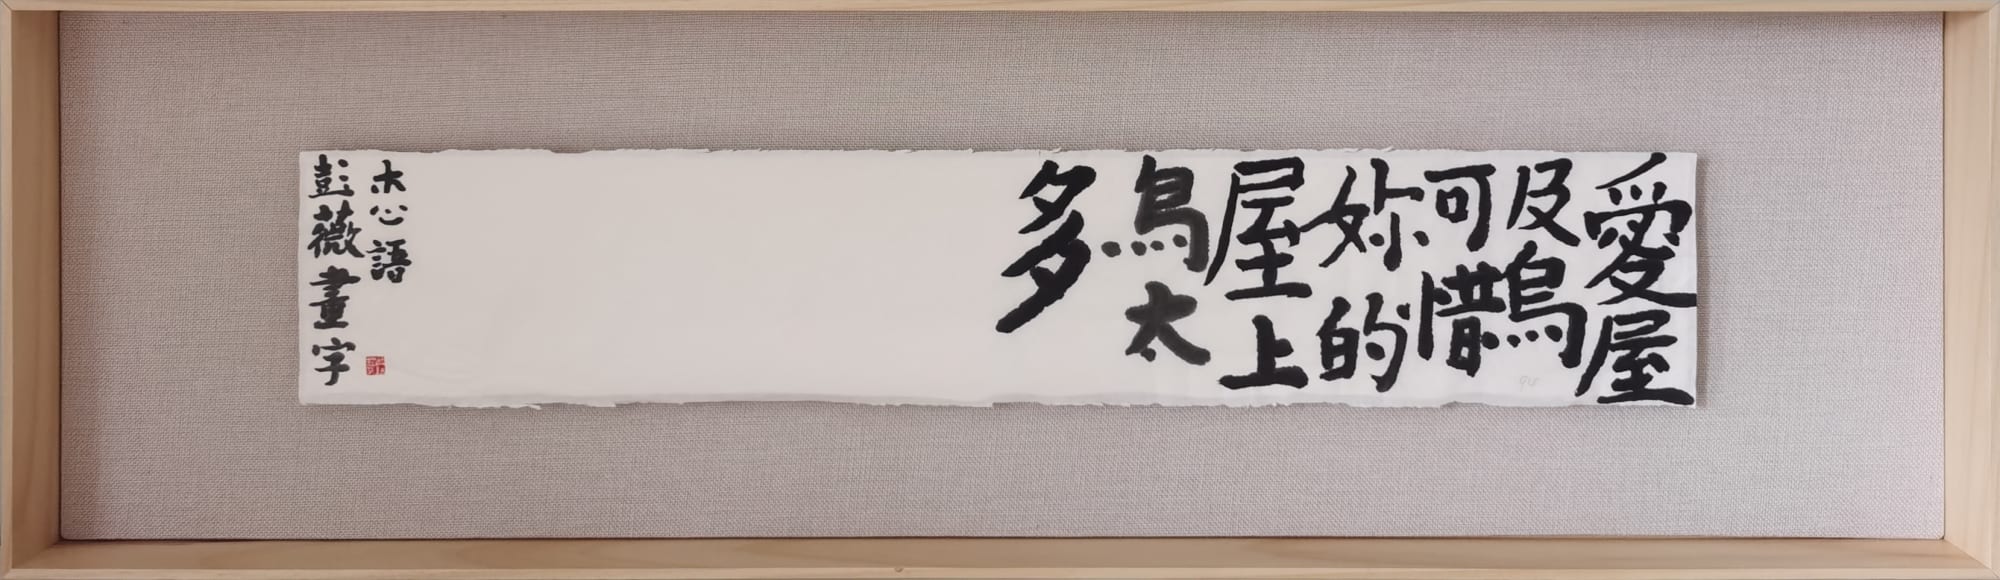 愛屋
及烏
可惜
妳的
屋上
烏太
多
木心語
彭薇畫字